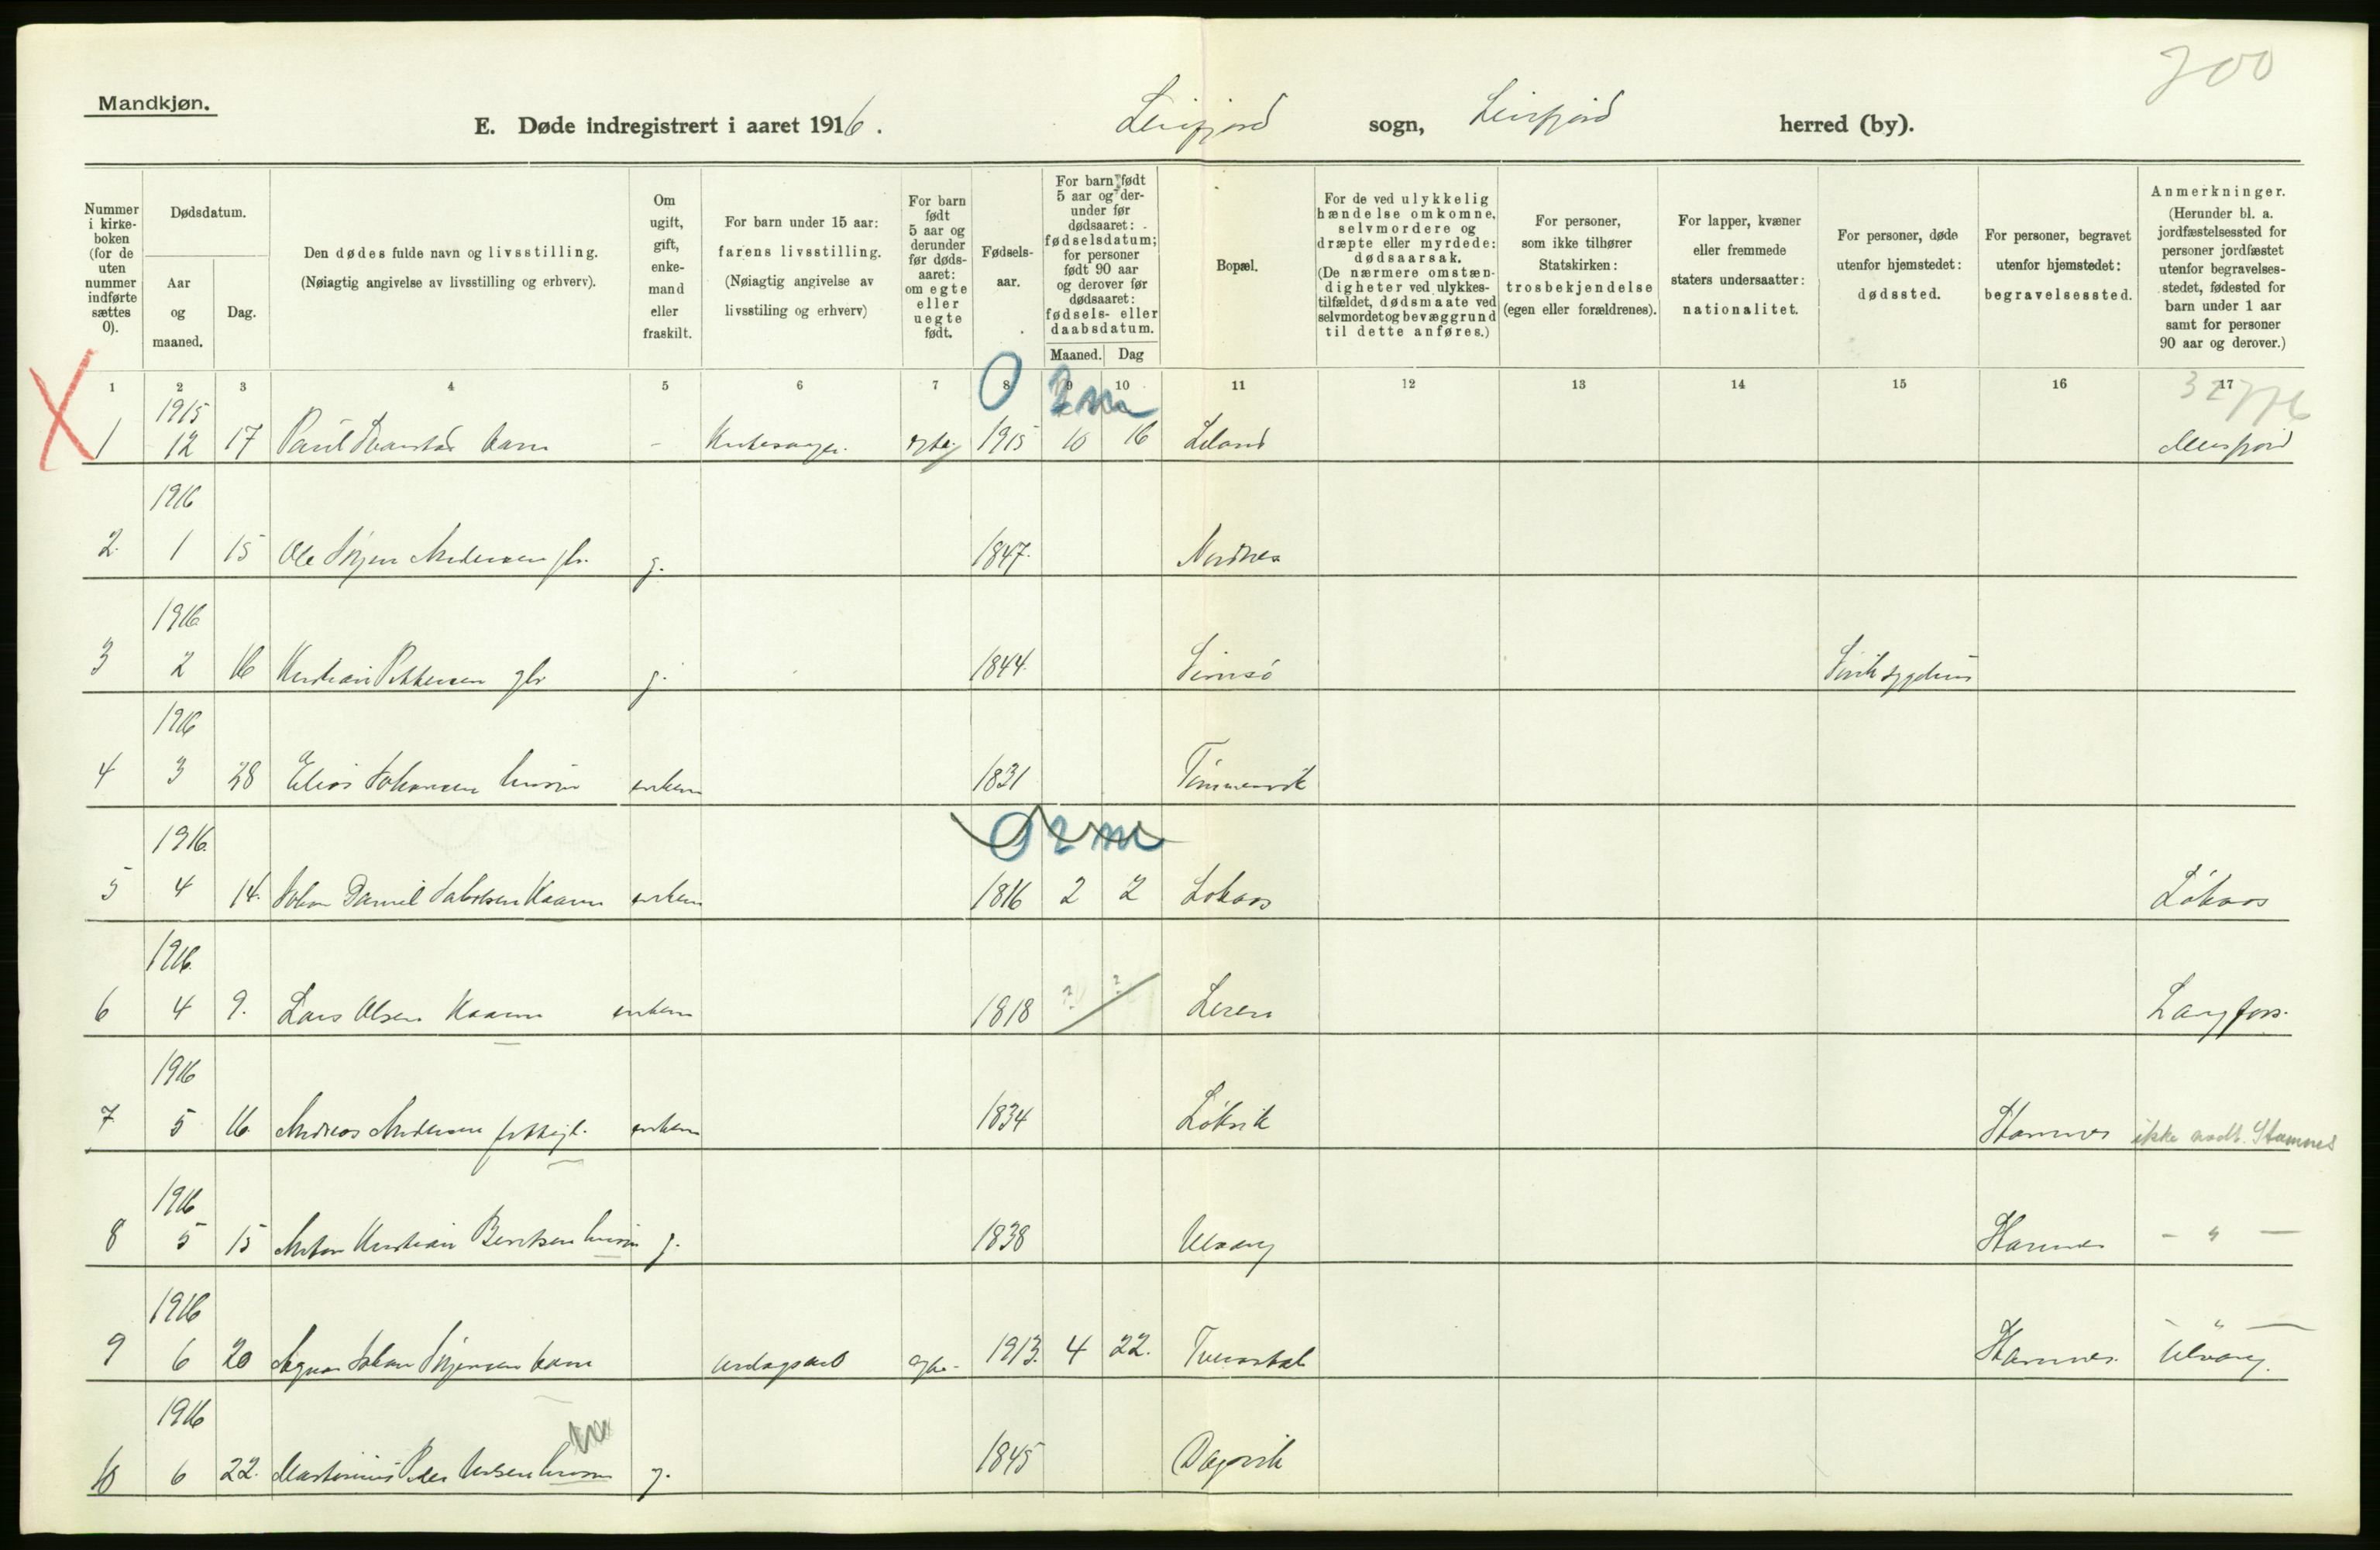 200
Mandkjøn.
E. Døde indregistrert i aaret 1916. Leirfjord sogn, Leirfjord herred (by).
Nummer i kirke-boken (for de uten nummer indførte sættes 0).
Dødsdatum.
Aar og maaned.
Dag.
Den dødes fulde navn og livsstilling.
(Nøiagtig angivelse av livsstilling og erhverv).
Om ugift, gift, enke-mand eller fraskilt.
For barn under 15 aar:
farens livsstilling.
(Nøiagtig angivelse av livsstiling og erhverv)
For barn født 5 aar og derunder før døds-aaret: om egte eller uegte født.
Fødsels-aar.
For barn født 5 aar og der-under før dødsaaret: fødselsdatum; for personer født 90 aar og derover før dødsaaret: fødsels- eller daabsdatum.
Maaned. Dag
Bopæl.
For de ved ulykkelig hændelse omkomne, selvmordere og dræpte eller myrdede: dødsaarsak. (De nærmere omstæn-digheter ved ulykkes-tilfældet, dødsmaate ved selvmordet og bevæggrund til dette anføres.)
For personer, som ikke tilhører Statskirken: trosbekjendelse (egen eller forældrenes).
For lapper, kvæner eller fremmede staters undersaatter: nationalitet.
For personer, døde utenfor hjemstedet: dødssted.
For personer, begravet utenfor hjemstedet: begravelsessted.
Anmerkninger.
(Herunder bl. a. jordfæstelsessted for personer jordfæstet utenfor begravelses-stedet, fødested for barn under 1 aar samt for personer 90 aar og derover.)
1 2 3 4 5 6 7 8 9 10 11 12 13 14 15 16 17
0 2 m 32776
1915
1 12 17 Paul barn - egte 1915 10 16 Leland Meisfjord
1916
2. 1 15 Ole Andersen g. 1847. Nordnes
1916
3 2 16 Kristian Pettersen gbr g. 1844. Simsø
1916
4 3 28 Elias Johansen enkem 1831 Tømmervik
0 2 m
1916.
5 4 14. Johan Daniel Jakobsen Kaarm enkem 1816 2 2 Lokaas Løkaas
1916.
6 4 9. Lars Olsen Kaarm enkem 1818 ? ? Leren Langfors.
1916
7 5 16 Andreas Andersen enkem 1834 Løkvik Stamnes ikke avdt. Stamnes
1916
8 5 15 Anton Kristian Berntsen g. 1838 Ulvang Stamnes - " -
1916
9 6 20 Johan barn egte 1913. 4 22. Stamnes Ulvang.
1916
10 6 22. Martinius Peder g. 1845 Dagsvik